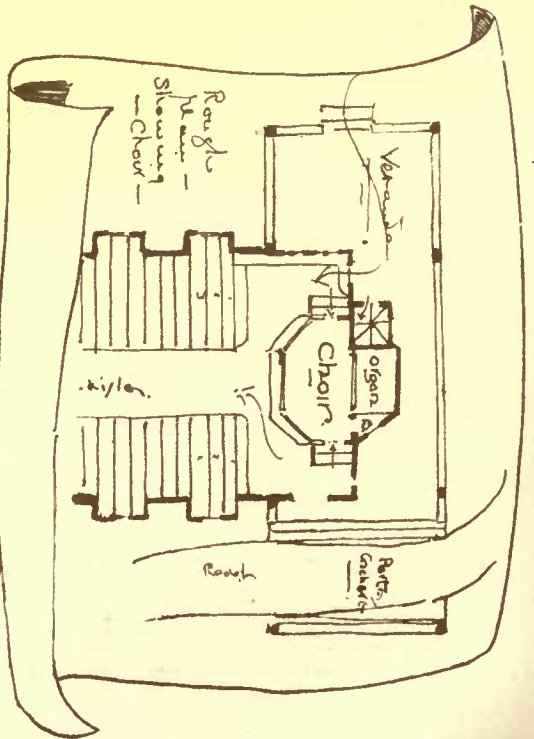 Rough
Plan —
Showing
— Choir —
Veranda
organ
Choir.
aisle.
Road
Porte
Cochere